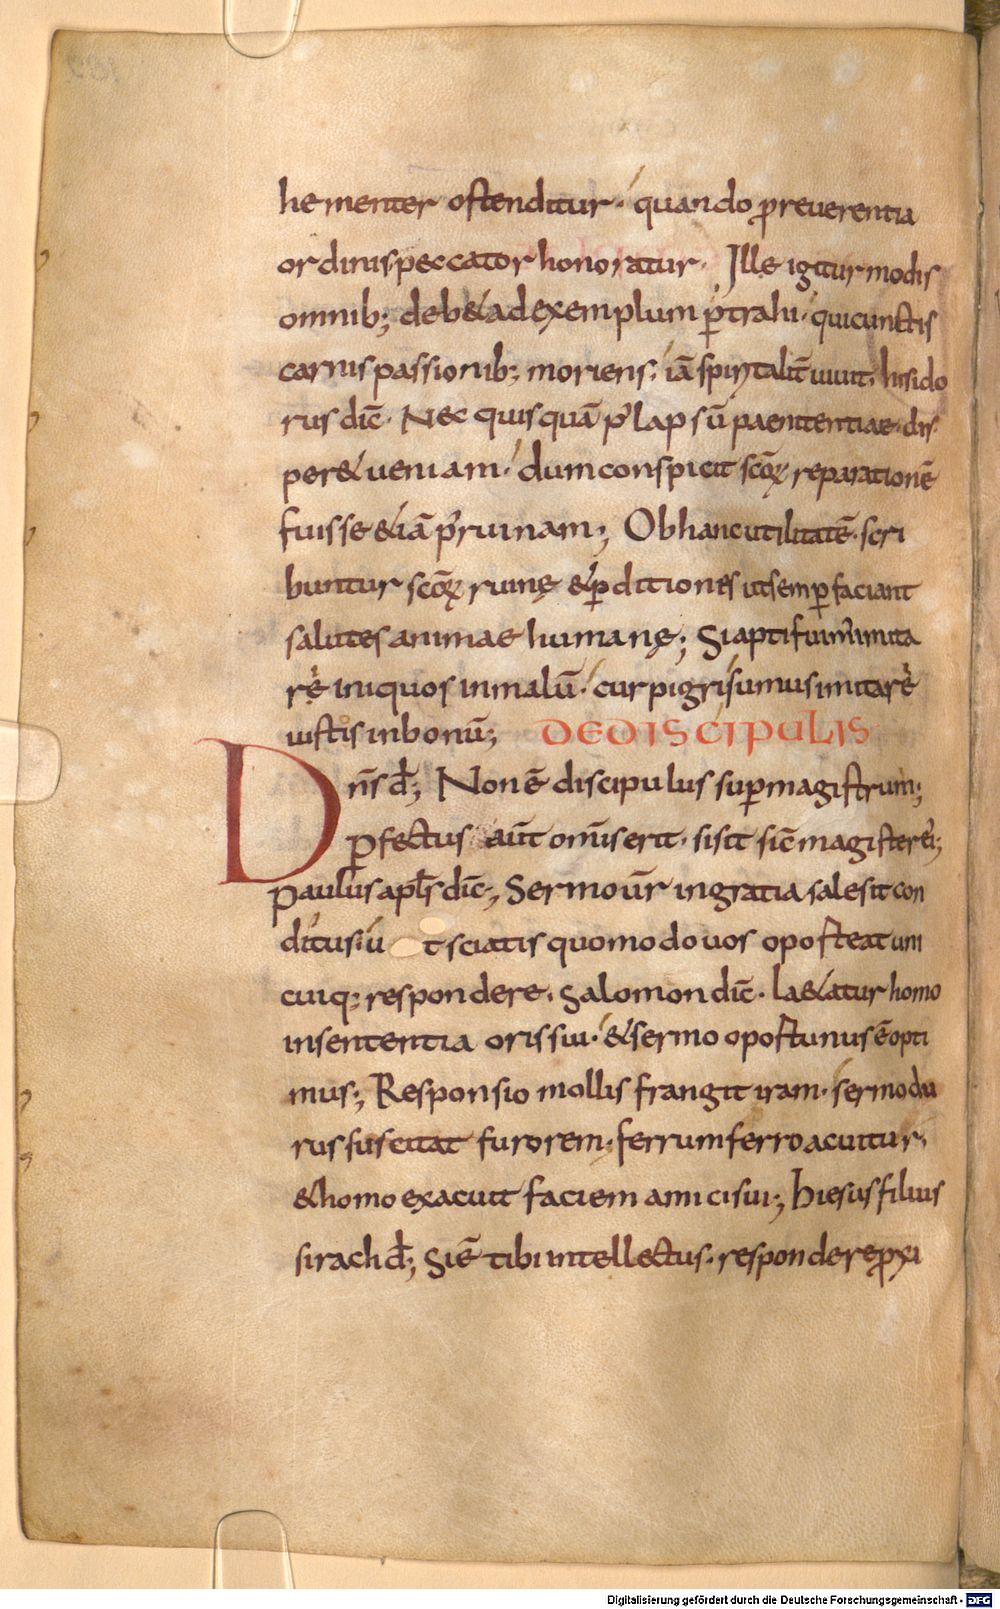 hementer ostenditur · quando ꝓreuerentia
ordinis peccator honoratur · Ille igitur modis
omnib; deb& ad exemplum ꝑtrahi · qui cunctis
carnis passionib; moriens · iā spiritalit̄ uiuit · hisido
rus dic̄ · Nec quisquā p' lapsū paenitentiae · dis
per& ueniam · dum conspicit scōꝝ reparationē
fuisse &iā p' ruinam; Ob hanc utilitatē · scri
buntur scōꝝ ruinę & ꝑditiones ut semꝑ faciant
salutes animae humanę; Si apti fuim' imita
rē iniquos in malū · cur pigri sumus imitarē
iustis in bonū; DE DISCIPULIS
Dn̄s d̄; Non ē discipulus suꝑ magistrum;
ꝑfectus aūt om̄is erit · si sit sic̄ magister ei';
Paulus apl̄s dic̄; Sermo ūr in gratia sale sit con
ditus · ut sciatis quomodo uos oporteat uni
cuiq; respondere. Salomon dic̄ · La&atur homo
in sententia oris sui · & sermo oportunus ē opti
mus; Responsio mollis frangit iram · sermo du
rus suscitat furorem · ferrum ferro acuitur ·
& homo exacuit faciem amici sui; hiesus filius
sirach d̄; Si ē tibi intellectus · responde ꝓxi
Digitalisierung gefördert durch die Deutsche Forschungsgemeinschaft - DFG